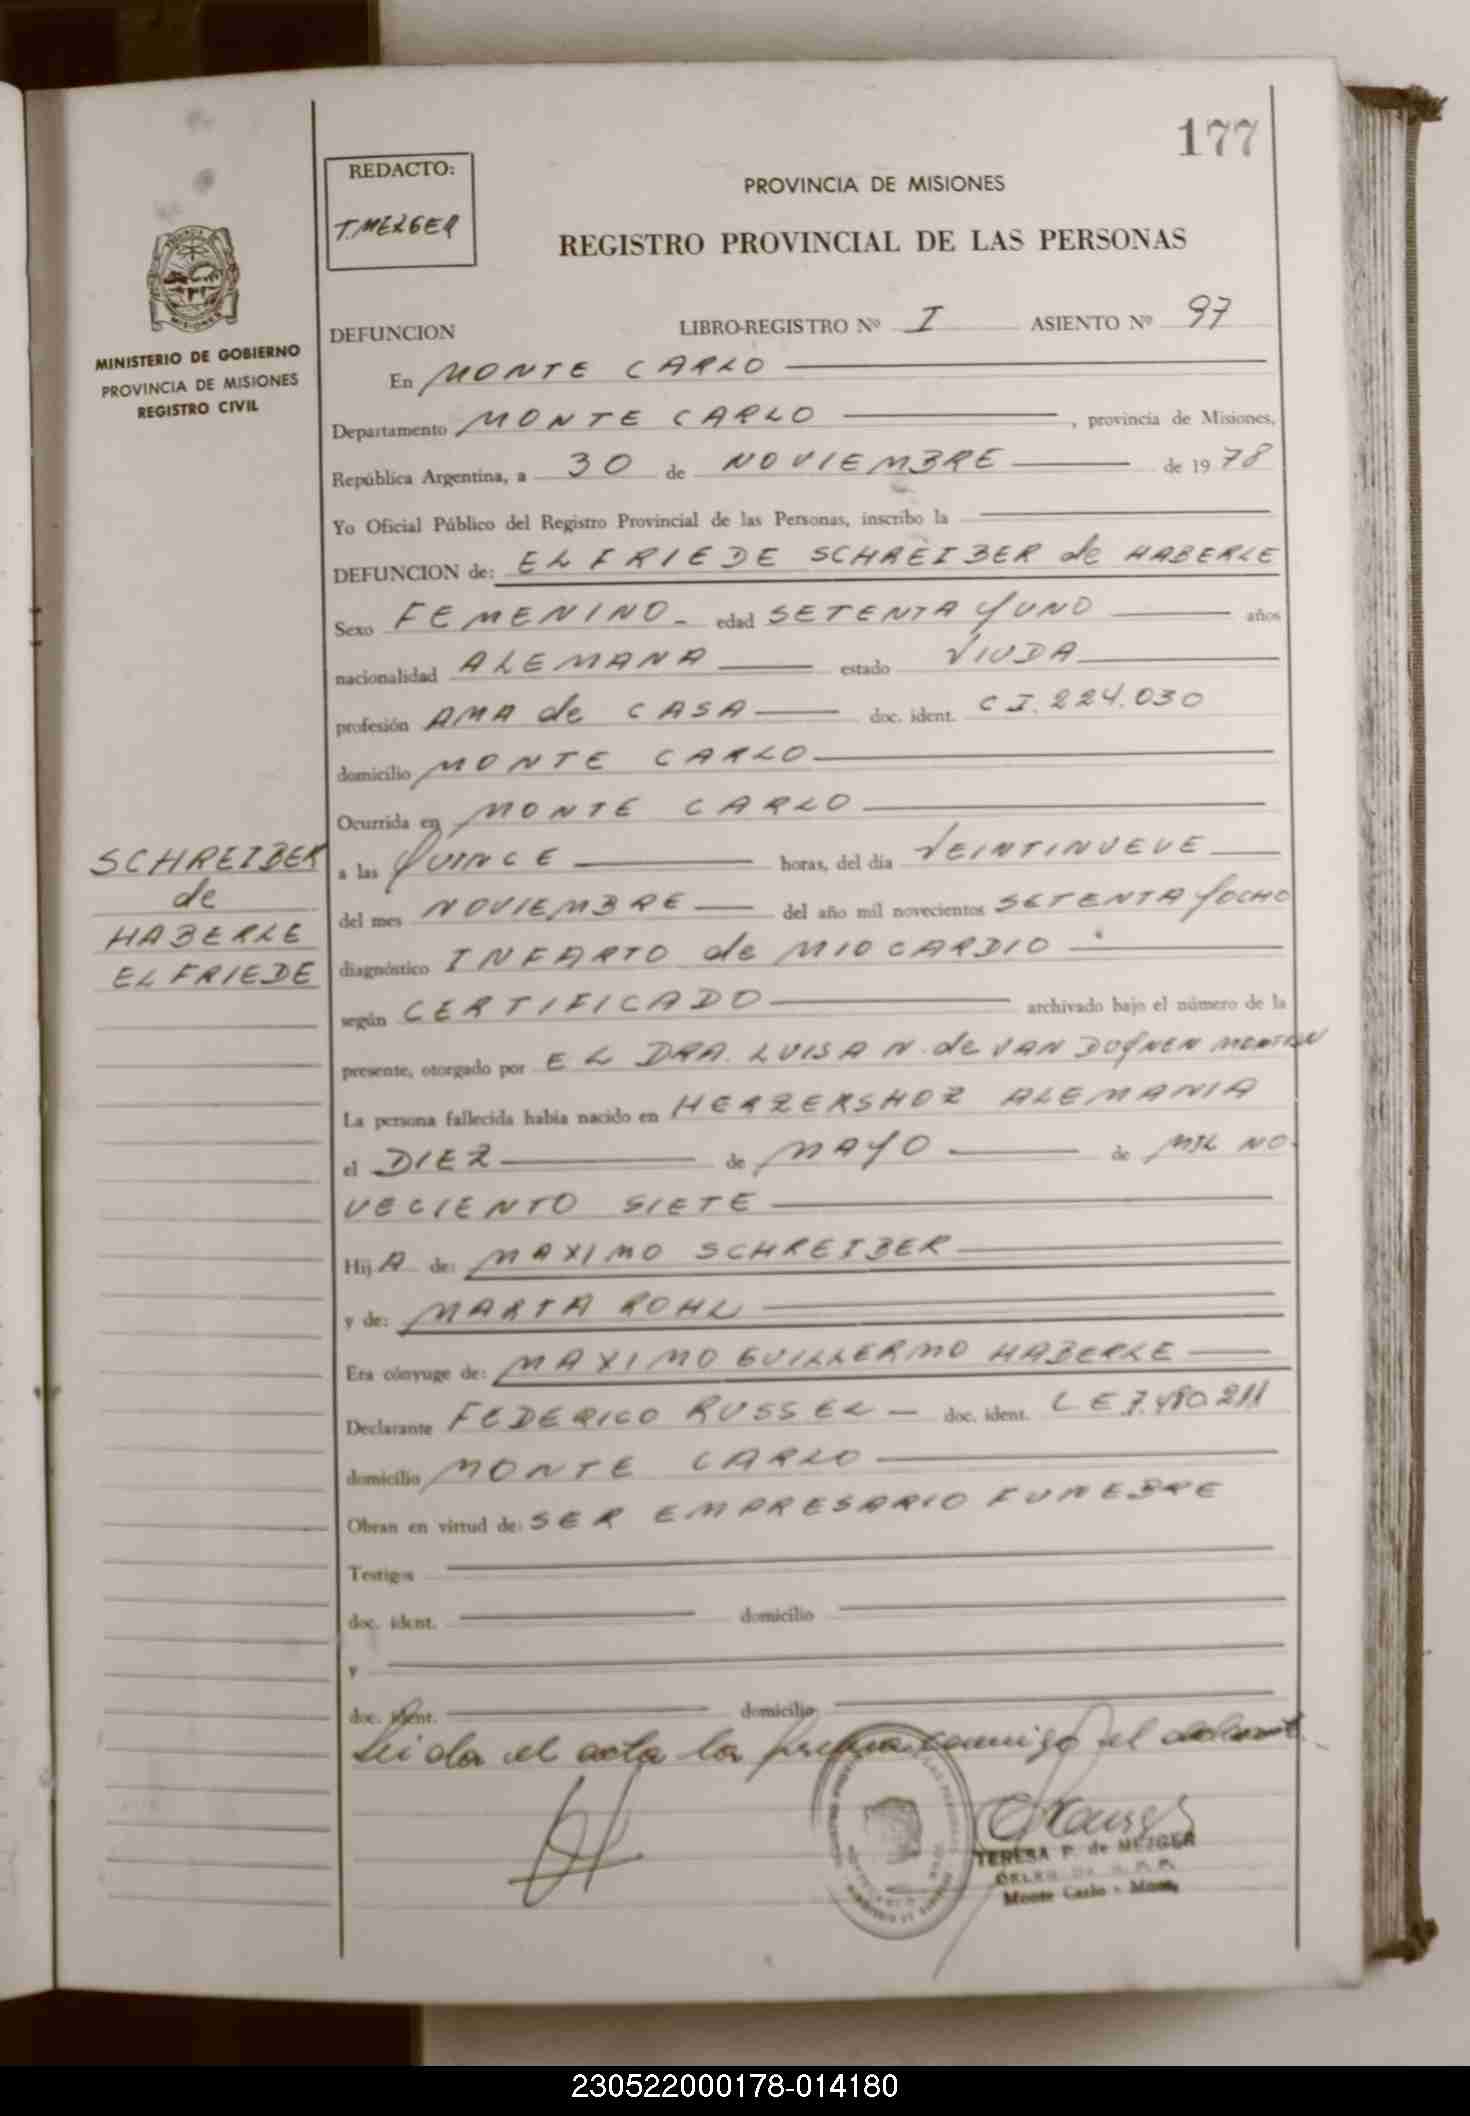 177
REDACTO:
T. MEZGER
PROVINCIA DE MISIONES
REGISTRO PROVINCIAL DE LAS PERSONAS
MINISTERIO DE GOBIERNO
PROVINCIA DE MISIONES
REGISTRO CIVIL
DEFUNCION LIBRO-REGISTRO Nº I ASIENTO Nº 97
En MONTE CARLO
Departamento MONTE CARLO, provincia de Misiones,
República Argentina, a 30 de NOVIEMBRE de 1978
Yo Oficial Público del Registro Provincial de las Personas, inscribo la
DEFUNCION de: ELFRIEDE SCHREIBER de HABERLE
Sexo FEMENINO - edad SETENTA Y UNO años
nacionalidad ALEMANA estado VIUDA
profesión AMA de CASA doc. ident. C I. 224.030
domicilio MONTE CARLO
Ocurrida en MONTE CARLO
a las QUINCE horas, del día VEINTINUEVE
del mes NOVIEMBRE del año mil novecientos SETENTA Y OCHO
diagnóstico INFARTO de MIOCARDIO
según CERTIFICADO archivado bajo el número de la
presente, otorgado por EL DRA. LUISA N. de VAN
La persona fallecida había nacido en HERZERSHOZ ALEMANIA
el DIEZ de MAYO de MIL NO-
VECIENTO SIETE
Hij A de: MAXIMO SCHREIBER
y de: MARTA ROHL
Era cónyuge de: MAXIMO GUILLERMO HABERLE
Declarante FEDERICO RUSSEL - doc. ident. L E 7.490.211
domicilio MONTE CARLO
Obran en virtud de: SER EMPRESARIO FUNEBRE
Testigos
doc. ident. domicilio
y
doc. ident. domicilio
Leida el acta la firma conmigo el
SCHREIBER
de
HABERLE
ELFRIEDE
TERESA P. de MEZGER
Monte Carlo - Mnes.
230522000178-014180